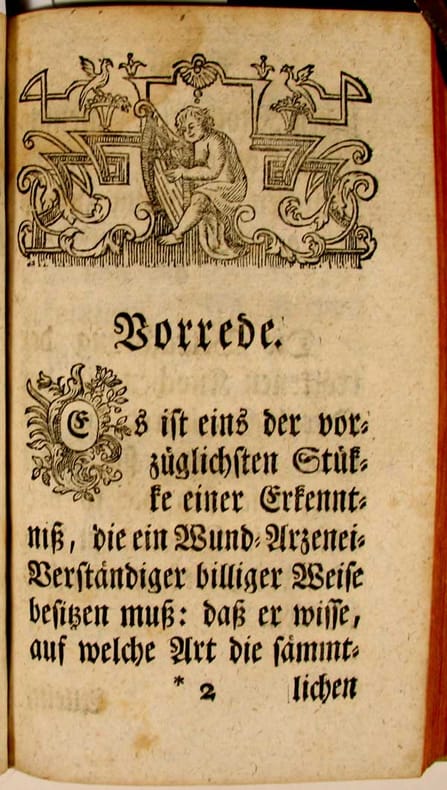 Vorrede.
Es ist eins der vor-
züglichsten Stük-
ke einer Erkennt-
niß, die ein Wund-Arzenei-
Verständiger billiger Weise
besitzen muß: daß er wisse,
auf welche Art die sämmt-
* 2 lichen